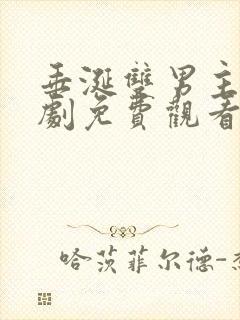 垂涎雙男主
劇免費觀看
哈茨菲尔德-杰